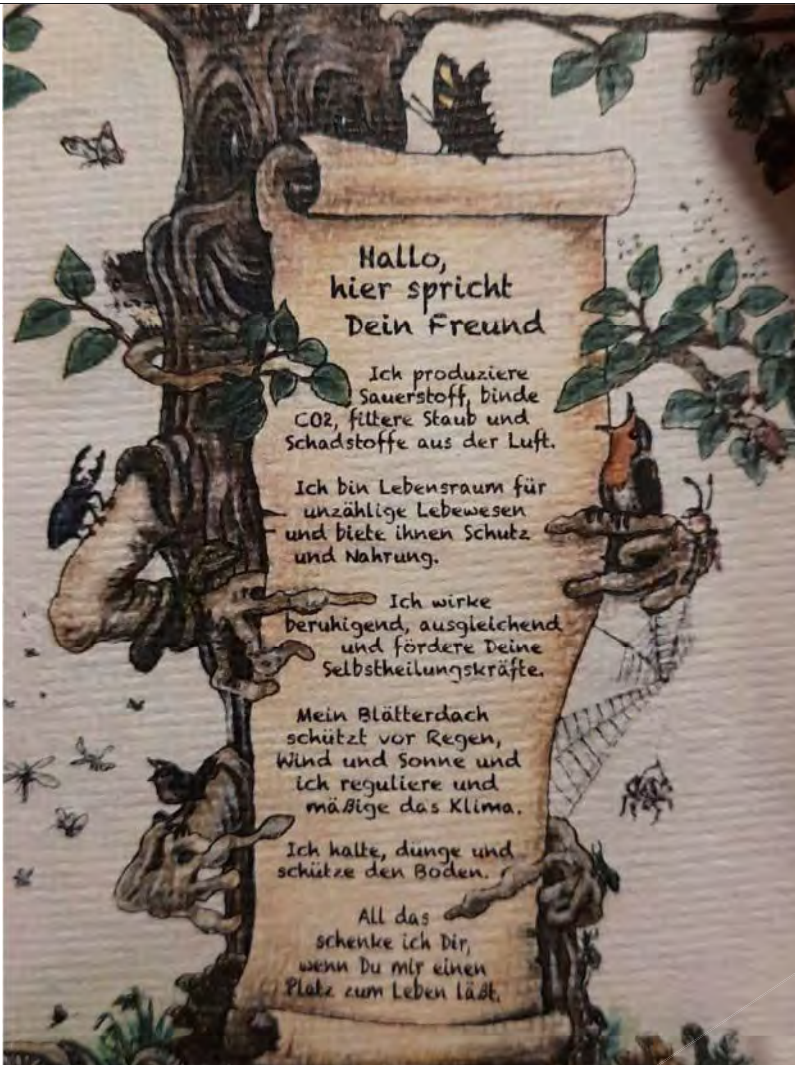 Hallo,
hier spricht
Dein Freund
Ich produziere
Sauerstoff, binde
CO2, filtere Staub und
Schadstoffe aus der Luft.
Ich bin Lebensraum für
unzählige Lebewesen
und biete ihnen Schutz
und Nahrung.
Ich wirke
beruhigend, ausgleichend
und fördere Deine
Selbstheilungskräfte.
Mein Blätterdach
schützt vor Regen,
Wind und Sonne und
ich reguliere und
mäßige das Klima.
Ich halte, dünge und
schütze den Boden.
All das
schenke ich Dir,
wenn Du mir einen
Platz zum Leben läßt.